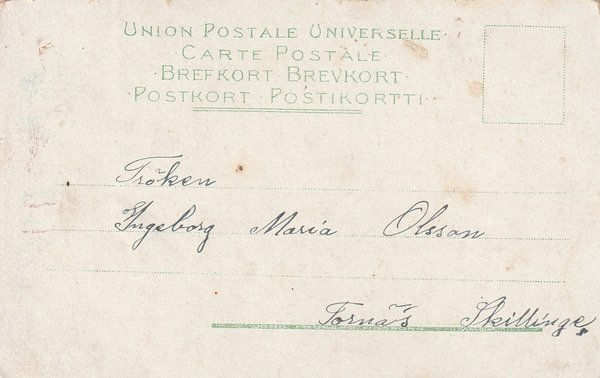 UNION POSTALE UNIVERSELLE·
·CARTE POSTALE·
·BREFKORT·BREVKORT·
·POSTKORT·POSTIKORTTI·
Fröken
Ingeborg Maria Olsson
Tornäs Skillinge.